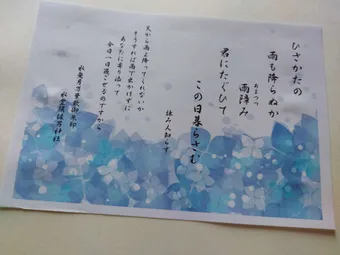 ひさかたの
雨も降らぬか
あまつつ
雨障み
君にたぐひて
この日暮らさむ
詠み人知らず
天から雨よ降ってくれないか
そうすれば雨で出かけずに
あなたに寄り添って
今日一日過ごせるのですから